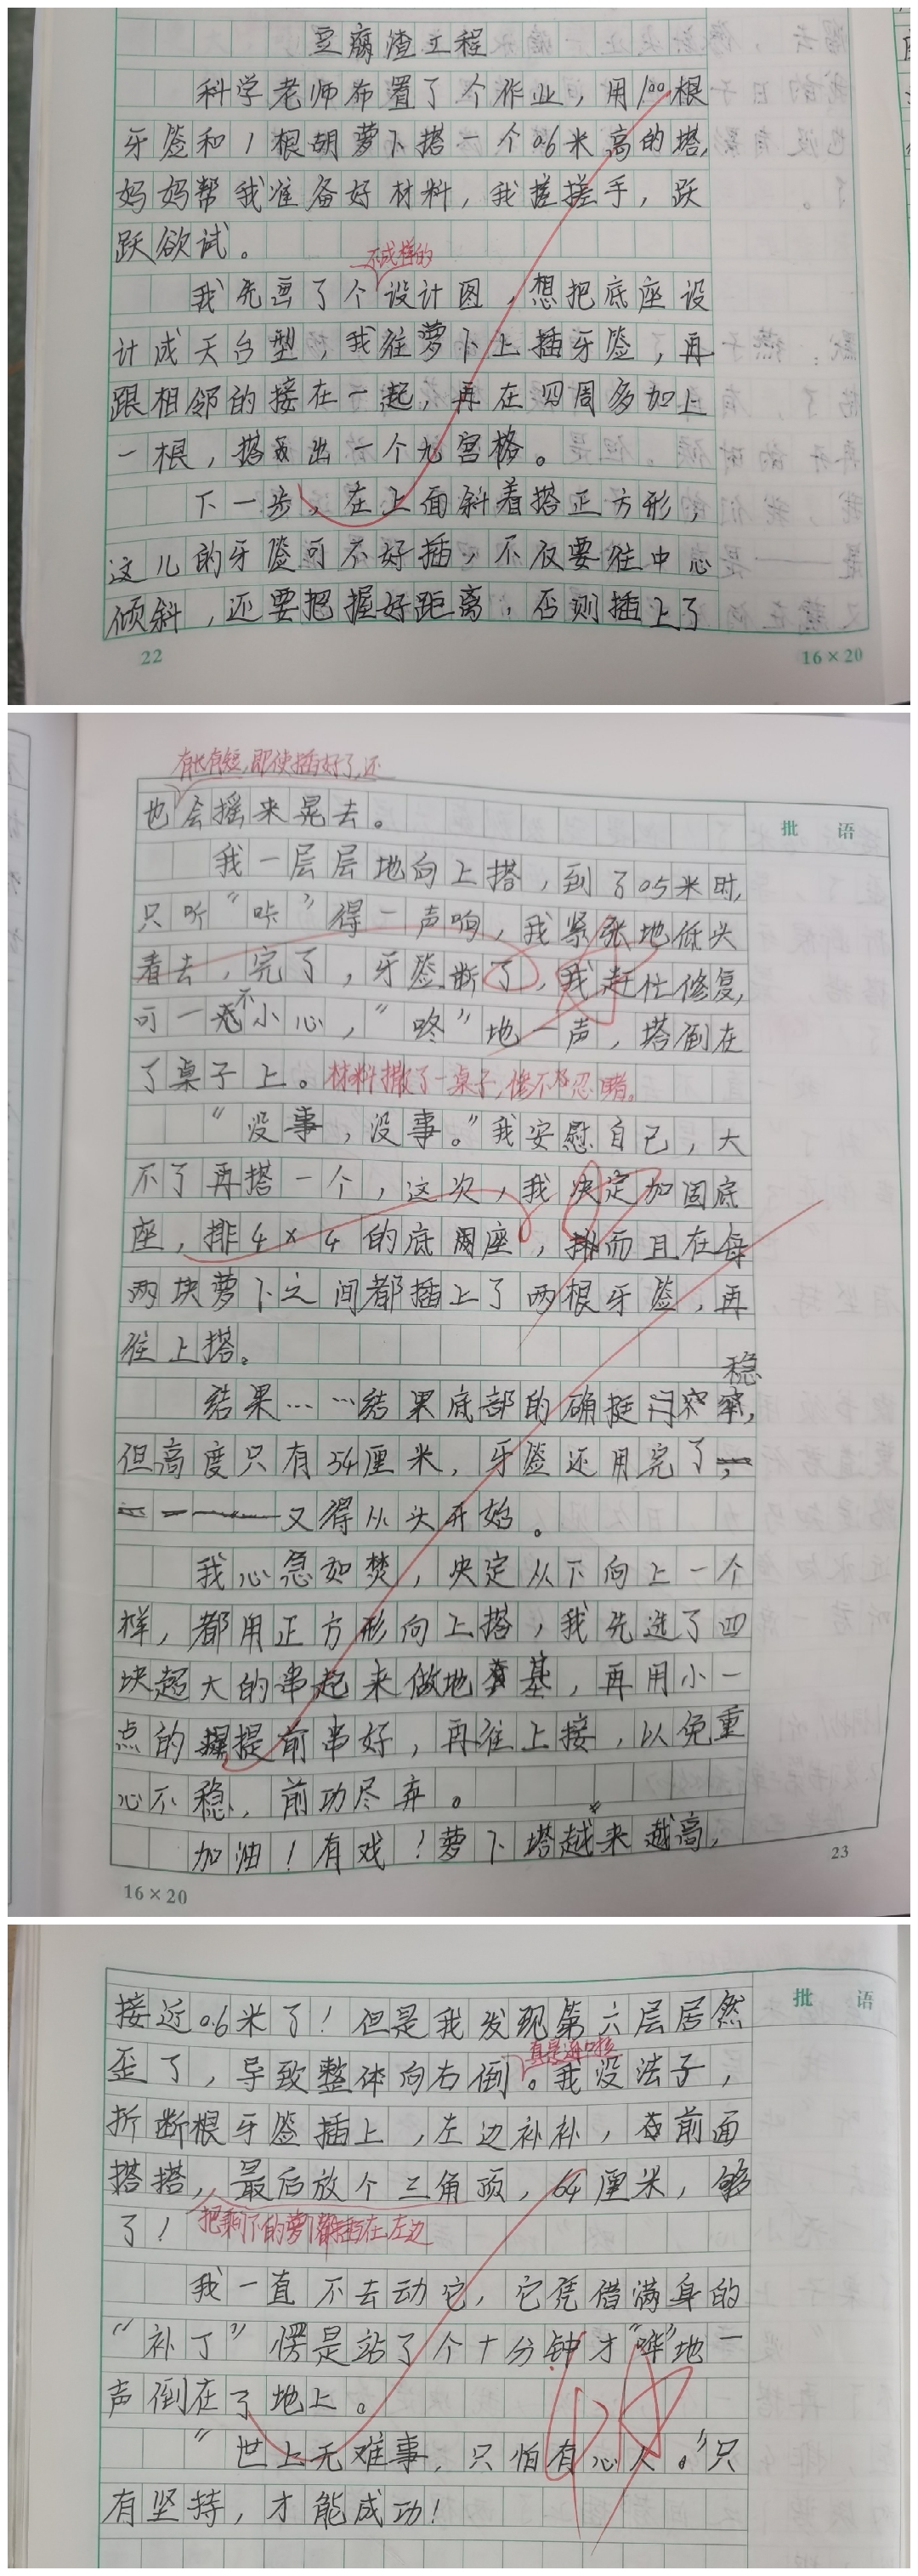 豆腐渣工程
科学老师布置了个作业，用100根
牙签和1根胡萝卜搭一个0.6米高的塔，
妈妈帮我准备好材料，我搓搓手，跃
跃欲试。
不成样的
我先画了个设计图，想把底座设
计成天台型，我往萝卜上插牙签，再
跟相邻的接在一起，再在四周多加上
一根，搭出一个九宫格。
下一步，在上面斜着搭正方形，
这儿的牙签可不好插，不仅要往中心
倾斜，还要把握好距离，否则插上了
22
16×20
有长有短，即使插好了，还
也会摇来晃去。
批 语
我一层层地向上搭，到了0.5米时，
只听“咔”得一声响，我紧张地低头
看去，完了，牙签断了，我赶忙修复，
可一不小心，“咚”地一声，塔倒在
了桌子上。材料撒了一桌子，惨不忍睹。
“没事，没事。”我安慰自己，大
不了再搭一个，这次，我决定加固底
座，排4×4的底座，而且在每
两块萝卜之间都插上了两根牙签，再
往上搭。
稳
结果……结果底部的确挺
但高度只有54厘米，牙签还用完了，
又得从头开始。
我心急如焚，决定从下向上一个
样，都用正方形向上搭，我先选了四
块超大的串起来做地基，再用小一
点的提前串好，再往上接，以免重
心不稳，前功尽弃。
加油！有戏！萝卜塔越来越高，
16×20
23
接近0.6米了！但是我发现第六层居然
批 语
歪了，导致整体向右倒。我没法子，
折断根牙签插上，左边补补，前面
搭搭，最后放个三角顶，64厘米，够
了！把剩下的萝卜都插在左边
我一直不去动它，它凭借满身的
“补丁”愣是站了个十分钟才“哗”地一
声倒在了地上。
“世上无难事，只怕有心人。”只
有坚持，才能成功！